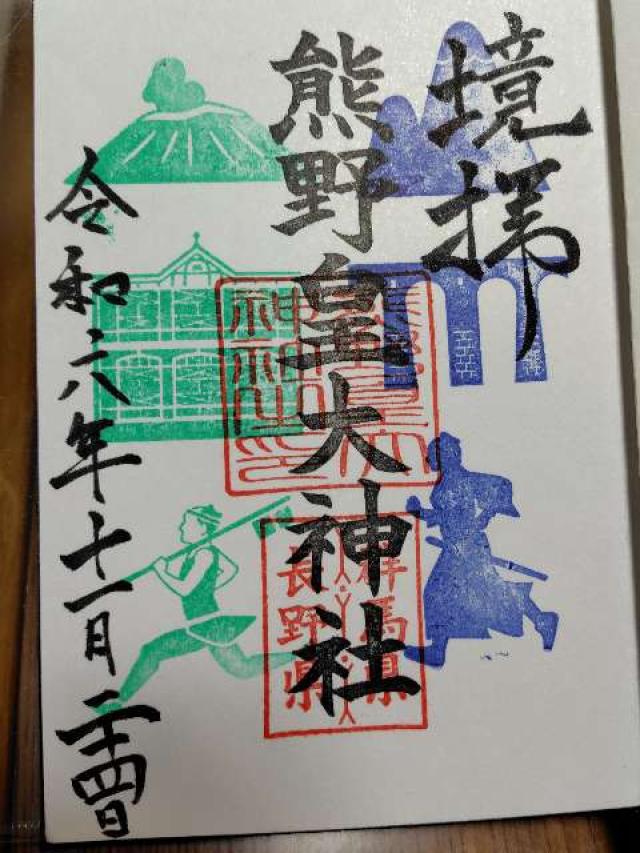 境拝
熊野皇大神社
群馬県
長野県
令和六年十一月二十四日